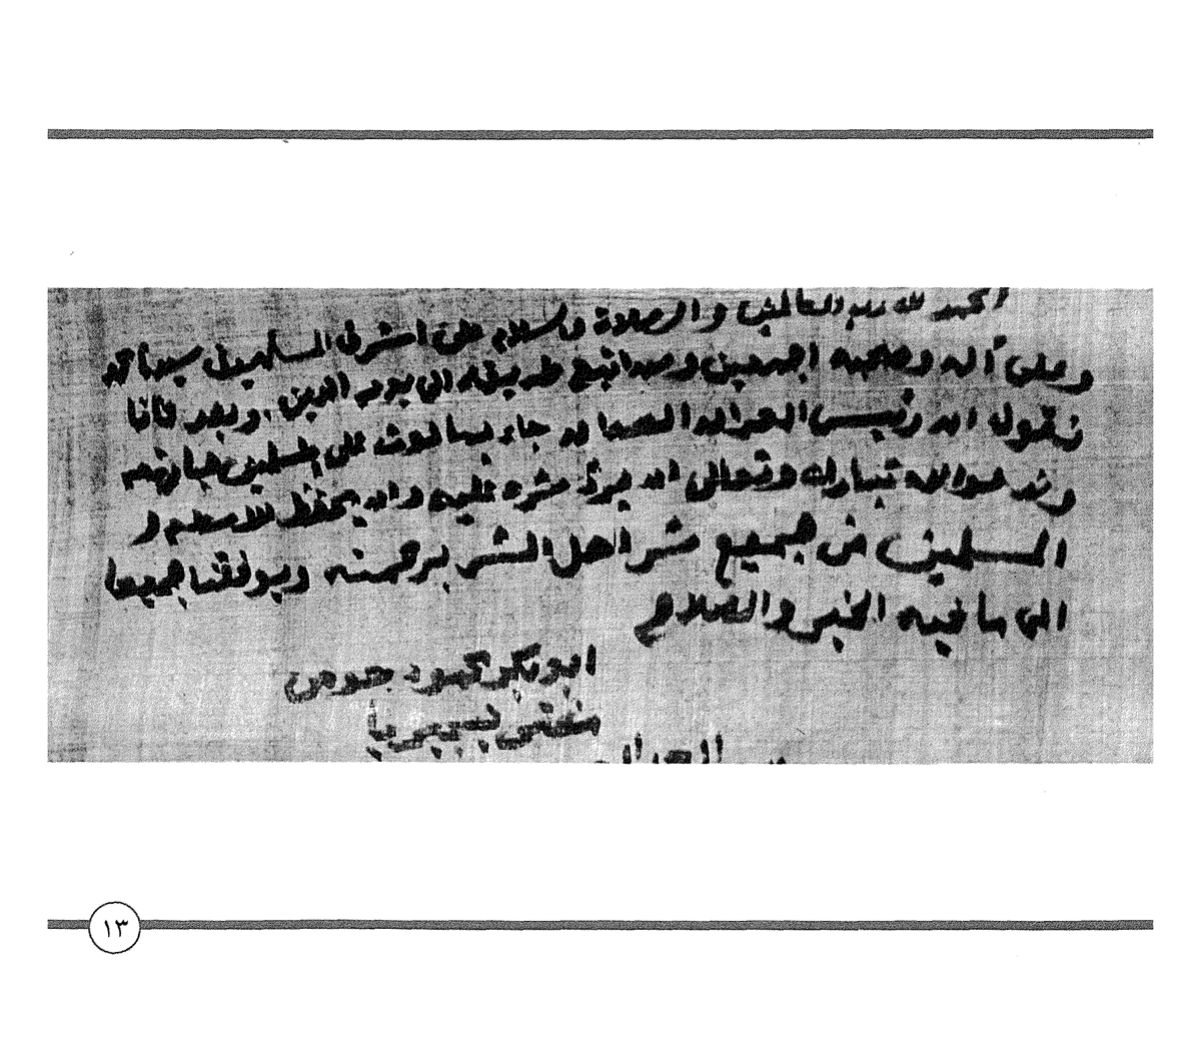 الحمد لله رب العالمين والصلاة والسلام على اشرف المسلمين سيدنا محمد
وعلى آله وصحبه اجمعين ومن اتبع طريقه الى يوم الدين، وبعد فاننا
نقول ان رئيس العراق الصدام قد جاء بما لوث على المسلمين
وندعو الله تبارك وتعالى ان يرد شره عليه وان يحفظ للاسلام و
المسلمين من جميع شر اهل الشر برحمته ويوفقنا جميعا
الى ما فيه الخير والصلاح
ابوبكر محمود جومى
مفتى نيجيريا
١٣